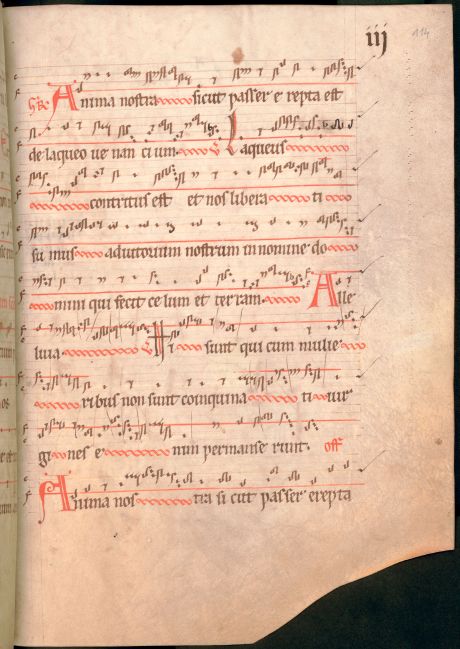 iij 114
Anima nostra sicut passer e repta est
de laqueo ve nan ci um Laqueus
contritus est et nos libera ti
su mus adiutorium nostrum in nomine do
mini qui fecit ce lum et terram Alle
luia Hi sunt qui cum mulie
ribus non sunt coinquina ti vir
gi nes e nim permanse runt off
Anima nos tra si cut passer erepta